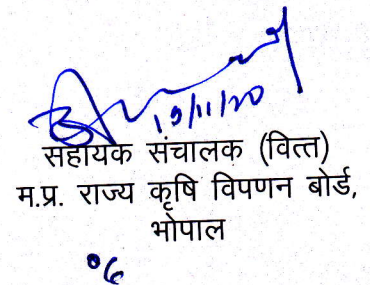 19/11/20
सहायक संचालक (वित्त)
म.प्र. राज्य कृषि विपणन बोर्ड,
भोपाल